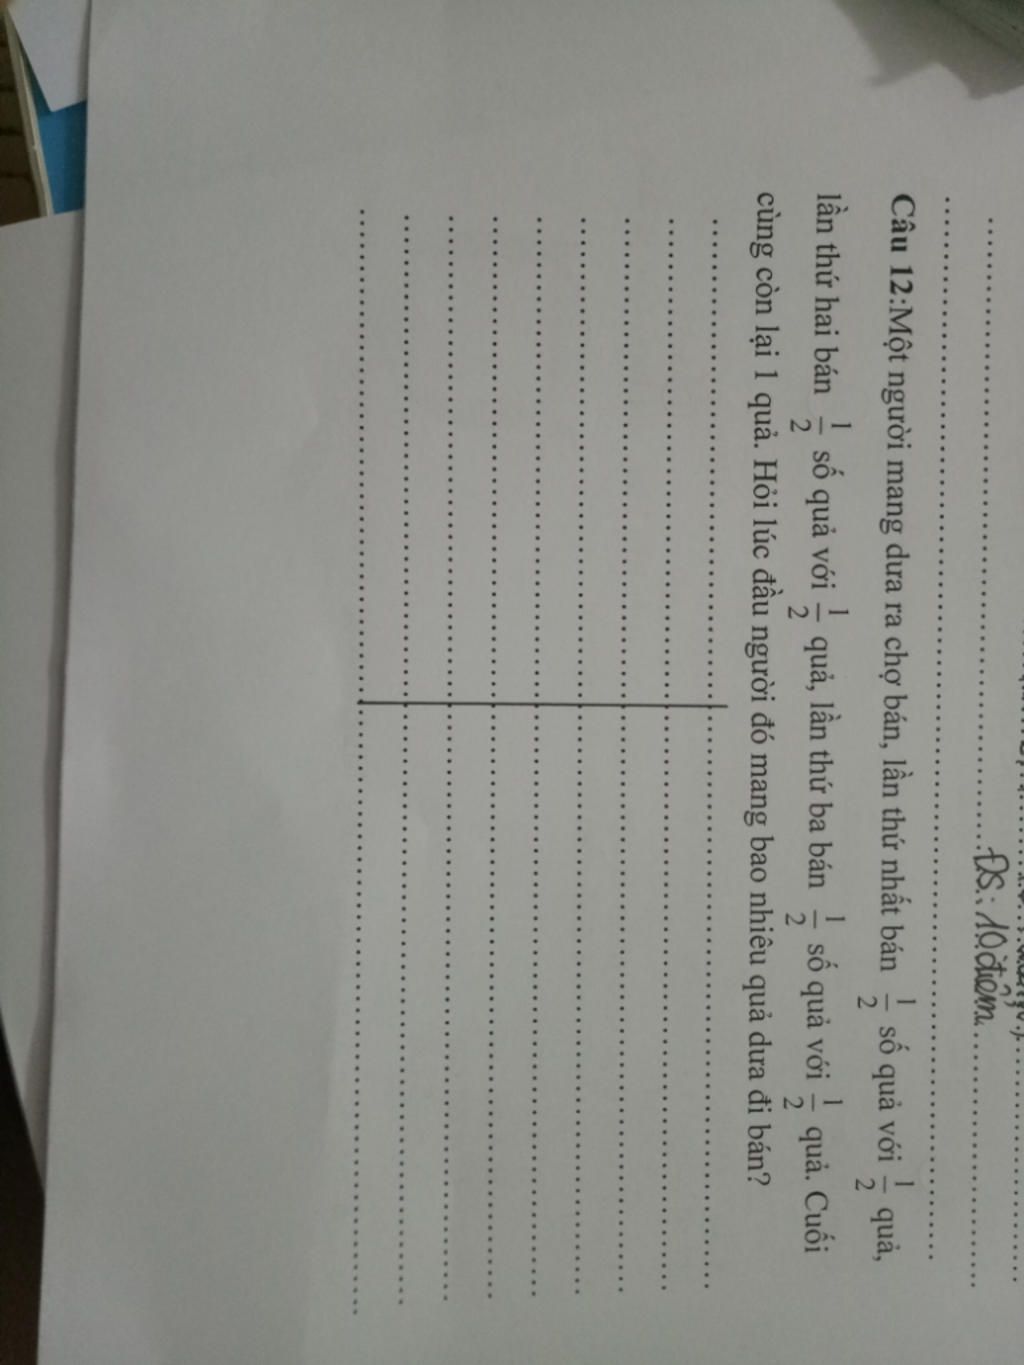 ĐS: 10 điểm
Câu 12:Một người mang dưa ra chợ bán, lần thứ nhất bán 1/2 số quả với 1/2 quả,
lần thứ hai bán 1/2 số quả với 1/2 quả, lần thứ ba bán 1/2 số quả với 1/2 quả. Cuối
cùng còn lại 1 quả. Hỏi lúc đầu người đó mang bao nhiêu quả dưa đi bán?